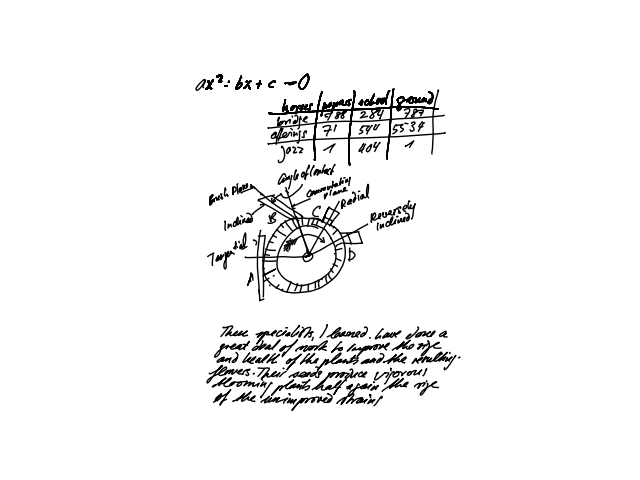 ax²: bx + c = 0
horses papers school ground
bridge 788 284 787
offerings 71 544 5534
jazz 1 404 1
Angle of Contact
Brush Plane
commutating plane
Inclined
B
C
Radial
Reversely Inclined
Tangential
D
A
These specialists, I learned, have done a
great deal of work to improve the size
and health of the plants and the resulting
flowers. Their seeds produce vigorous
blooming plants half again the size
of the unimproved strains